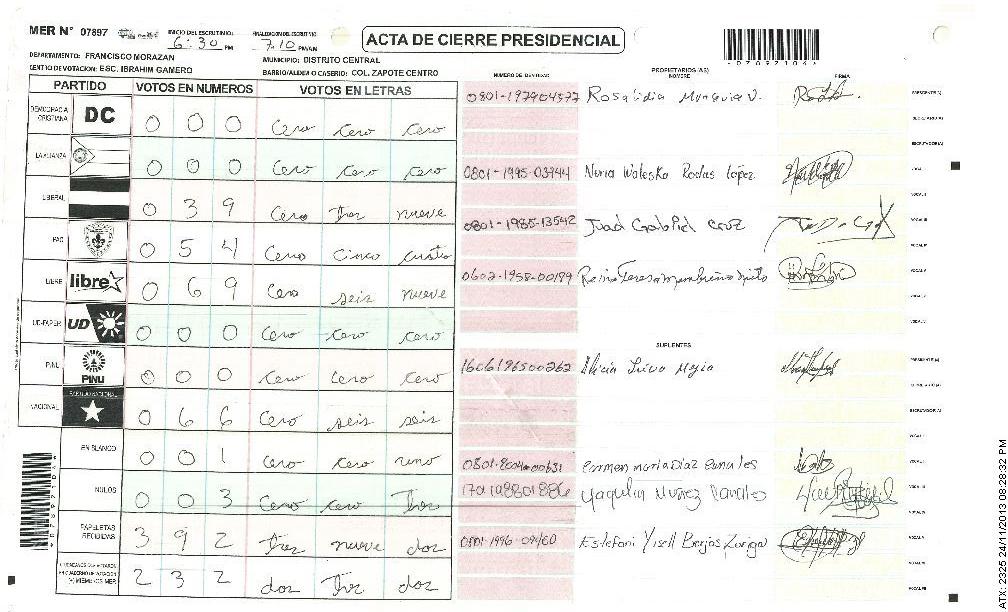 MER Nº 07897
INICIO DEL ESCRUTINIO: 6:30 PM
FINALIZACION DEL ESCRUTINIO 7:10 PM/AN
ACTA DE CIERRE PRESIDENCIAL
DEPARTAMENTO: FRANCISCO MORAZAN
MUNICIPIO: DISTRITO CENTRAL
CENTRO DE VOTACION: ESC. IBRAHIM GAMERO
BARRIO/ALDEA O CASERIO: COL. ZAPOTE CENTRO
PARTIDO VOTOS EN NUMEROS VOTOS EN LETRAS
DEMOCRACIA CRISTIANA DC 0 0 0 Cero cero cero
LA ALIANZA 0 0 0 Cero cero cero
LIBERAL 0 3 9 Cero Tres nueve
PAC 0 5 4 Cero Cinco cuatro
LIBRE libre 0 6 9 Cero seis nueve
UD-FAPER UD 0 0 0 Cero cero cero
PINU PINU 0 0 0 Cero Cero cero
NACIONAL PARTIDO NACIONAL 0 6 6 Cero seis seis
EN BLANCO 0 0 1 Cero cero uno
NULOS 0 0 3 Cero Cero Tres
PAPELETAS RECIBIDAS 3 9 2 Tres nueve dos
2 3 2 dos Tres dos
NUMERO DE IDENTIDAD
PROPIETARIOS (AS)
NOMBRE
FIRMA
0801-197904577 Rosalidia Munguia V.
PRESIDENTE (A)
SECRETARIO (A)
ESCRUTADOR (A)
VOCAL I
0801-1995-03944 Nuria Waleska Rodas López
VOCAL II
VOCAL III
0801-1985-13542 Juan Gabriel Cruz
VOCAL IV
VOCAL V
0602-1958-00199
SUPLENTES
PRESIDENTE (A)
1606196500262 Alicia Mejia
SECRETARIO (A)
ESCRUTADOR (A)
VOCAL I
Carmen Maria Diaz Canales
VOCAL II
Yaquelin Nuñez Canales
VOCAL III
VOCAL IV
Estefani Yisell
VOCAL V
ATX: 2325 24/11/2013 08:28:32 PM